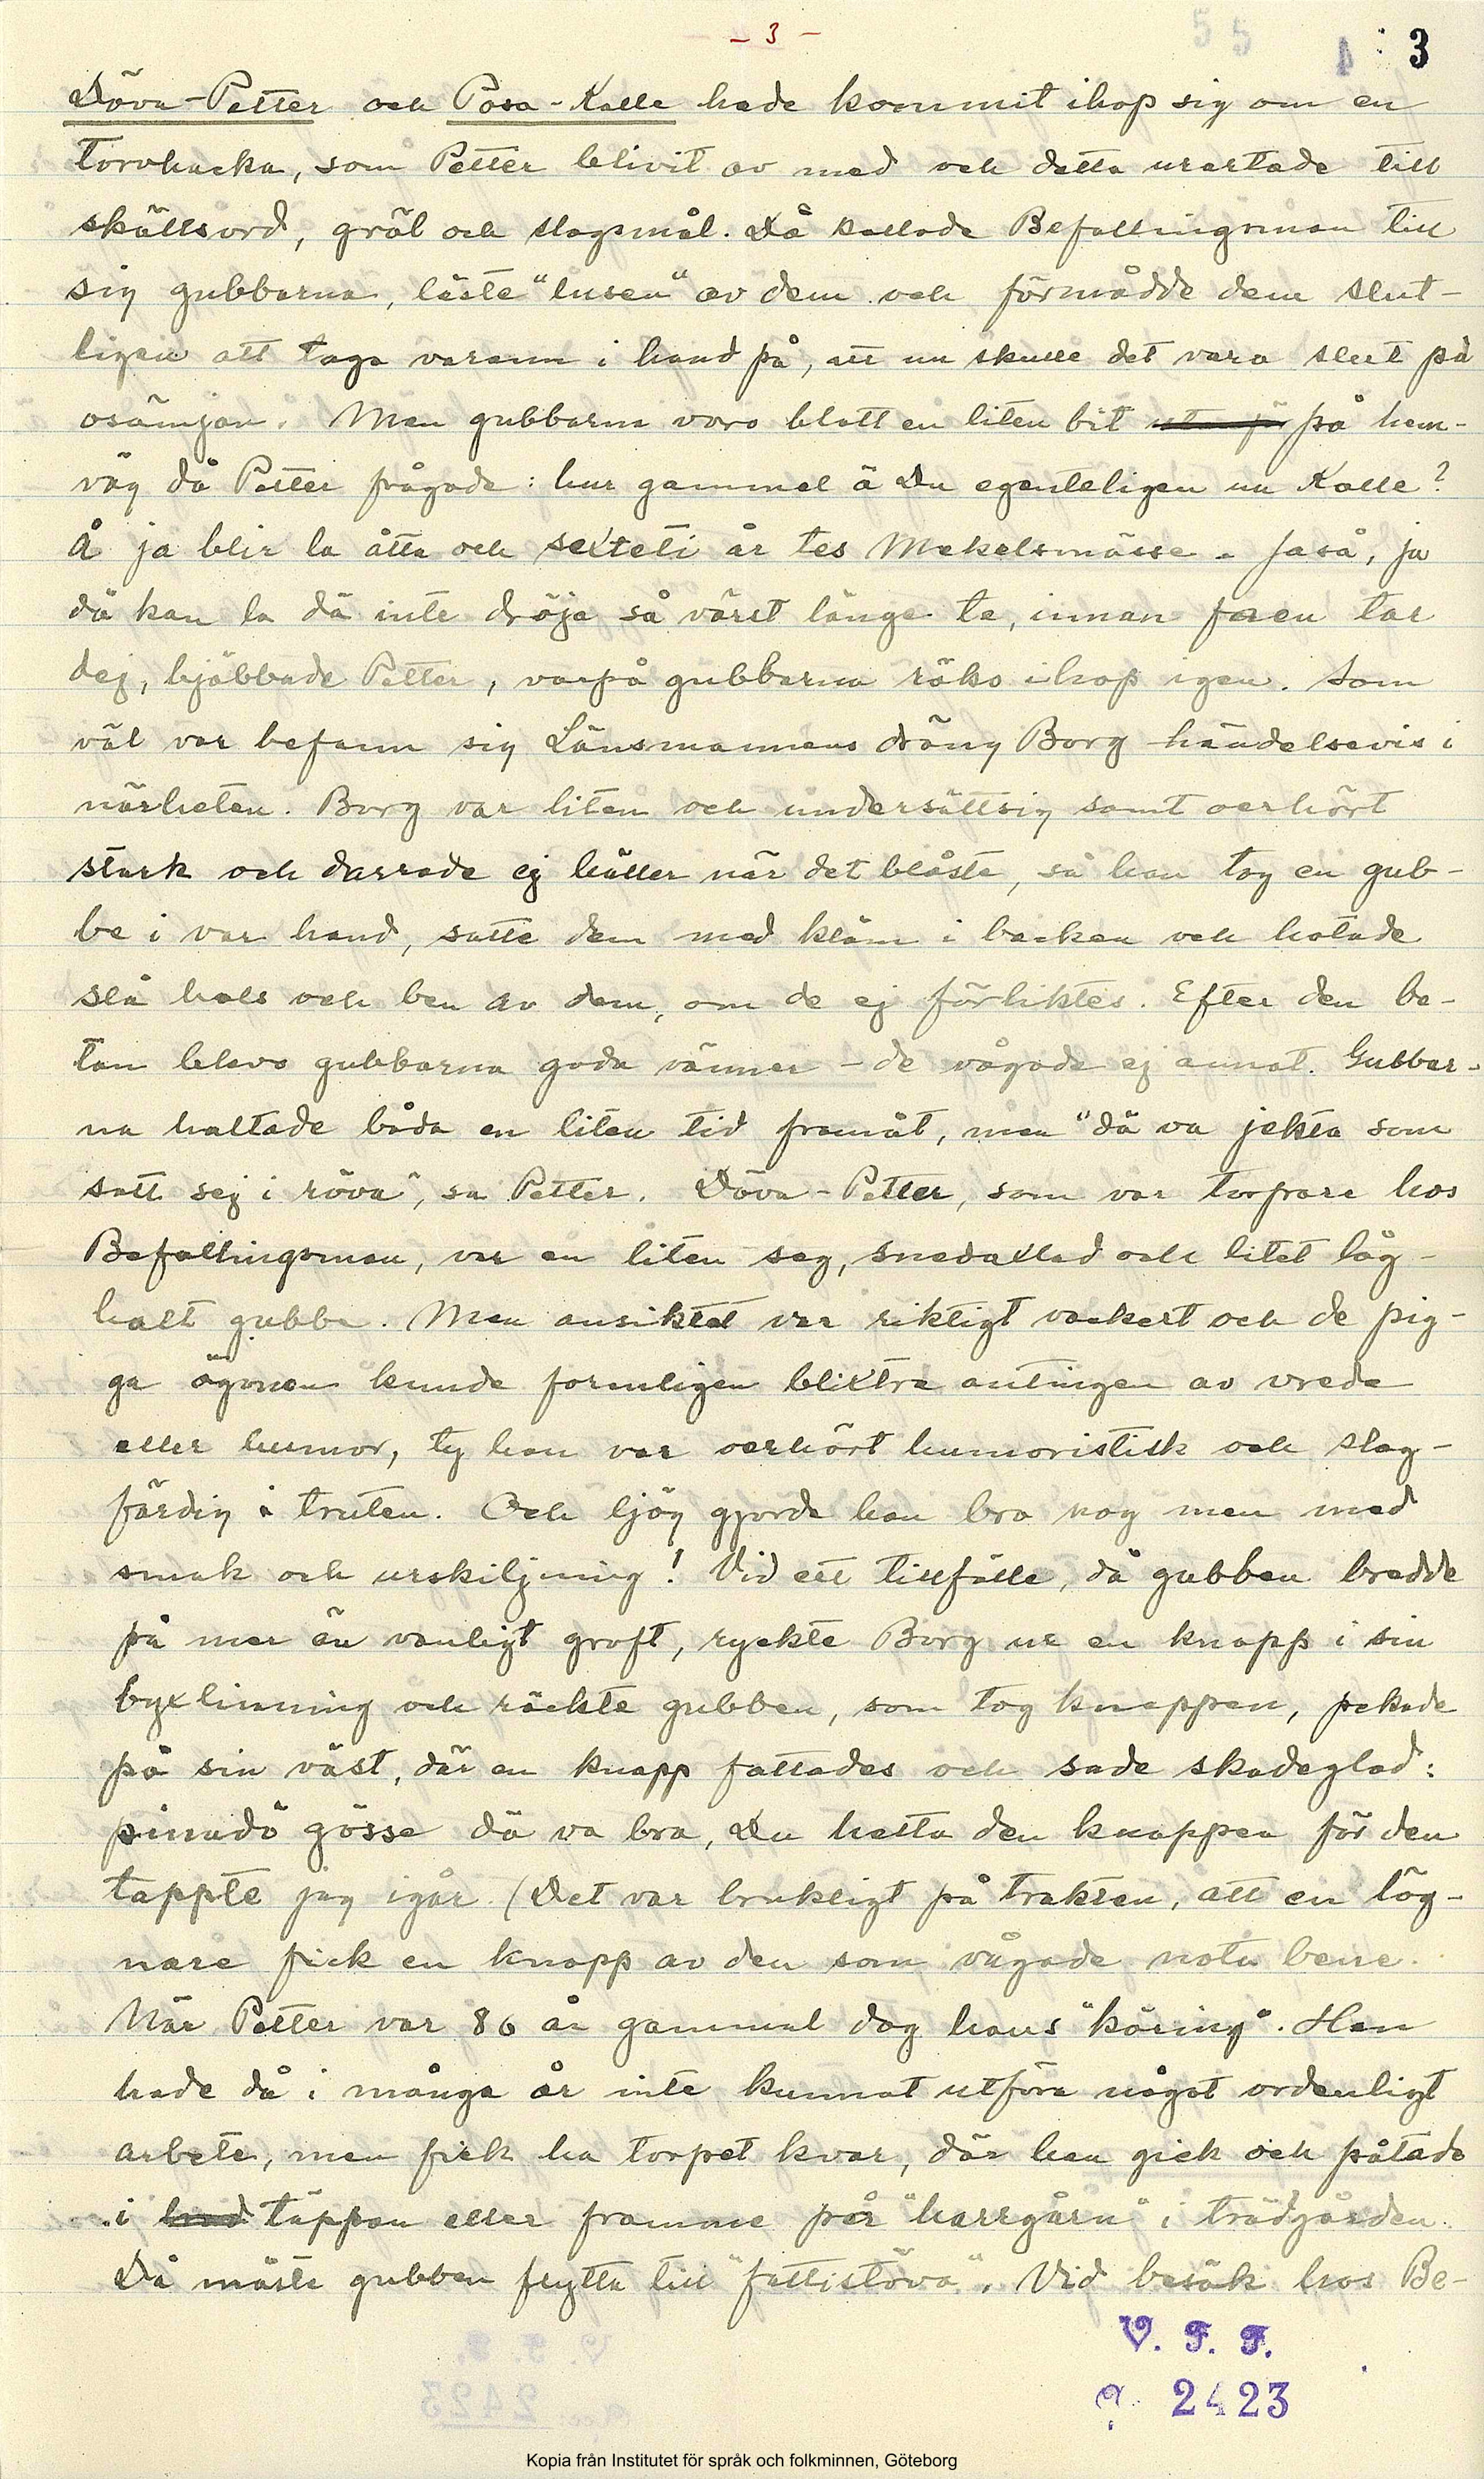 – 3 –
3
Döva-Petter och Posa-Kalle hade kommit ihop sig om en
torvhacka, som Petter blivit av med och detta urartade till
skällsord, gräl och slagsmål. Då kallade Befallingsman till
sig gubbarna, läste "lusen" av dem och förmådde dem slut-
ligen att taga varann i hand på, att nu skulle det vara slut på
osämjan. Men gubbarna voro blott en liten bit på hem-
väg då Petter frågade: hur gammel ä Du egenteligen nu Kalle?
Å ja blir la åtta och sexteti år tes Mekelsmässe. Jaså, ja
då kan la dä inte dröja så värst länge te, innan faen tar
dej, bjäbbade Petter, varpå gubbarna röko ihop igen. Som
väl var befann sig Länsmannens dräng Borg händelsevis i
närheten. Borg var liten och undersättsig samt oerhört
stark och darrade ej häller när det blåste, så han tog en gub-
be i var hand, satte dem med kläm i backen och hotade
slå hals och ben av dem, om de ej förliktes. Efter den be-
tan blevo gubbarna goda vänner – de vågade ej annat. Gubbar-
na haltade båda en liten tid framåt, men "dä va jekta som
satt sej i röva", sa Petter. Döva-Petter, som var torpare hos
Befallingsman, var en liten seg, snedaxlad och litet låg-
halt gubbe. Men ansiktet var riktigt vackert och de pig-
ga ögonen kunde formligen blixtra antingen av vrede
eller humor, ty han var oerhört humoristisk och slag-
färdig i truten. Och ljög gjorde han bra nog men med
smak och urskiljning! Vid ett tillfälle, då gubben bredde
på mer än vanligt groft, ryckte Borg ur en knapp i sin
byxlinning och räckte gubben, som tog knappen, pekade
på sin väst, där en knapp fattades och sade skadeglad:
pinadö gösse dä va bra, Du hetta den knappen för den
tappte jag igår. (Det var brukligt på trakten, att en lög-
nare fick en knapp av den som vågade nota bene.
När Petter var 86 år gammal dog hans "käring". Han
hade då i många år inte kunnat utföra något ordenligt
arbete, men fick ha torpet kvar, där han gick och påtade
i täppan eller framme på "harrgårn" i trädgården.
Då måste gubben flytta till "fattistöva". Vid besök hos Be-
V. F. F.
2423
Kopia från Institutet för språk och folkminnen, Göteborg